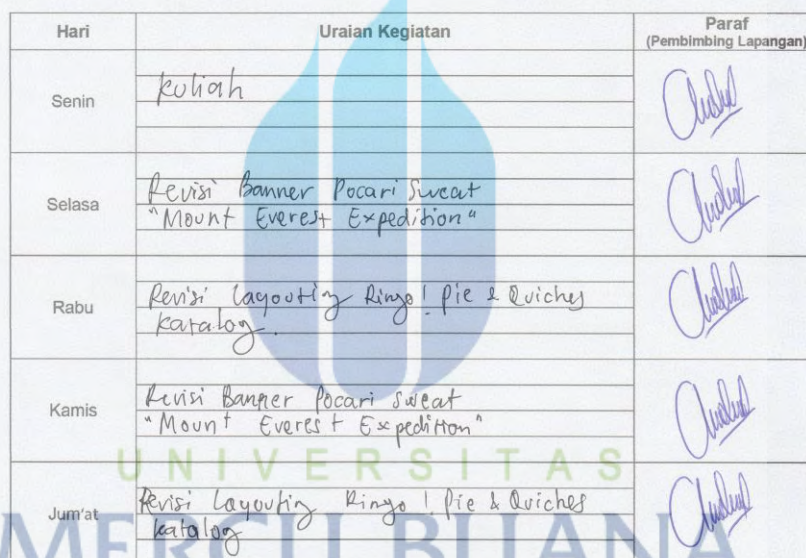 Hari Uraian Kegiatan Paraf
(Pembimbing Lapangan)
Senin kuliah
Selasa Revisi Banner Pocari Sweat
"Mount Everest Expedition"
Rabu Revisi Layouting Ringo! Pie & Quiches
katalog.
Kamis Revisi Banner Pocari Sweat
"Mount Everest Expedition"
UNIVERSITAS
Jum'at Revisi Layouting Ringo! Pie & Quiches
katalog
MERCU BUANA